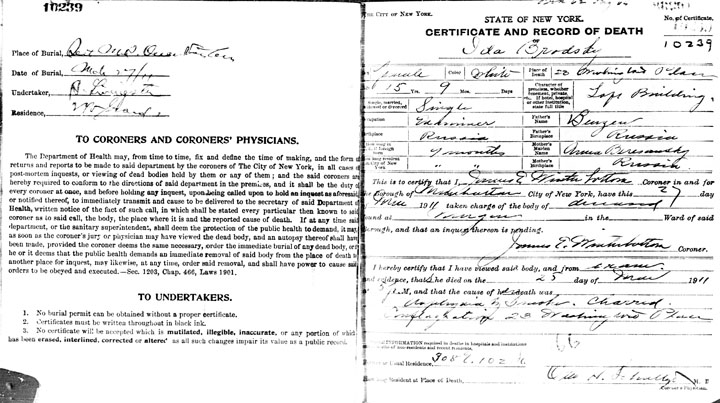 10239
Place of Burial,
Date of Burial, Mch 27/11
Undertaker,
Residence,
TO CORONERS AND CORONERS' PHYSICIANS.
The Department of Health may, from time to time, fix and define the time of making, and the form
returns and reports to be made to said department by the coroners of The City of New York, in all cases of
post-mortem inquests, or viewing of dead bodies held by them or any of them; and the said coroners are
hereby required to conform to the directions of said department in the premises, and it shall be the duty of
every coroner at once, and before holding any inquest, upon being called upon to hold an inquest as aforesaid
or notified thereof, to immediately transmit and cause to be delivered to the secretary of said Department of
Health, written notice of the fact of such call, in which shall be stated every particular then known to said
coroner as to said call, the body, the place where it is and the reported cause of death. If at any time said
department, or the sanitary superintendent, shall deem the protection of the public health to demand, it may
as soon as the coroner's jury or physician may have viewed the dead body, and an autopsy thereof shall have
been made, provided the coroner deems the same necessary, order the immediate burial of any dead body, or if
he or it deems that the public health demands an immediate removal of said body from the place of death to
another place for inquest, may likewise, at any time, order said removal, and shall have power to cause said
orders to be obeyed and executed.—Sec. 1203, Chap. 466, Laws 1901.
TO UNDERTAKERS.
1. No burial permit can be obtained without a proper certificate.
2. Certificates must be written throughout in black ink.
3. No certificate will be accepted which is mutilated, illegible, inaccurate, or any portion of which
has been erased, interlined, corrected or altered as all such changes impair its value as a public record.
THE CITY OF NEW YORK.
STATE OF NEW YORK.
No. of Certificate,
CERTIFICATE AND RECORD OF DEATH
10239
Of Ida Brodsky
Female Color White Place of Death 23 Washington Place
15 Yrs. 9 Mos. Days Character of premises, whether tenement, private, hotel, hospital or other institution, state full title Loft Building
Single, married, Single
Occupation Examiner Father's Name
Birthplace Russia Father's Birthplace Russia
9 months Mother's Maiden Name Anna
" " Mother's Birthplace Russia
This is to certify that I, James E. Winterbottom Coroner in and for
Borough of Manhattan City of New York, have this 27 day
Mch 1911 taken charge of the body of deceased
found at Morgue in the Ward of said
Borough, and that an inquest thereon is pending.
James E. Winterbottom Coroner.
I hereby certify that I have viewed said body, and from exam.
and evidence, that he died on the 25 day of Mar 1911
M, and that the cause of h death was
Asphyxia by Smoke. Charred
Conflagration 23 Washington Place
66
INFORMATION required in deaths in hospitals and institutions
or Usual Residence, 308 E. 102
Resident at Place of Death, M. D
Coroner's Physician.